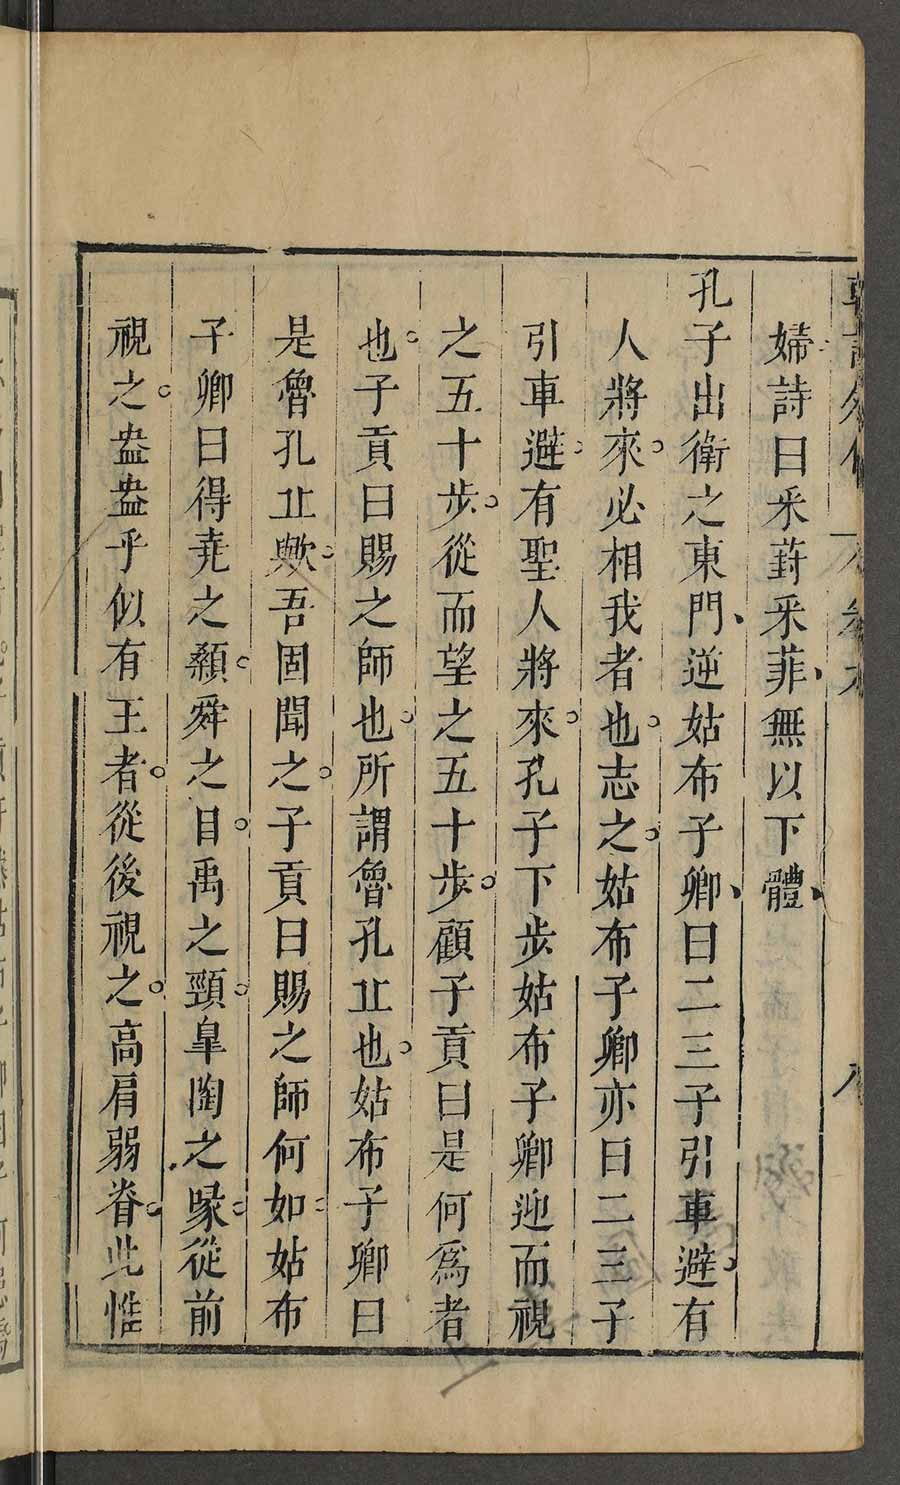 韓詩外傳 卷九 八
婦詩曰采葑采菲無以下體
孔子出衛之東門逆姑布子卿曰二三子引車避有
人將來必相我者也志之姑布子卿亦曰二三子
引車避有聖人將來孔子下步姑布子卿迎而視
之五十步從而望之五十步顧子貢曰是何爲者
也子貢曰賜之師也所謂魯孔丠也姑布子卿曰
是魯孔丠歟吾固聞之子貢曰賜之師何如姑布
子卿曰得堯之顙舜之目禹之頸皐陶之喙從前
視之盎盎乎似有王者從後視之高肩弱脊此惟